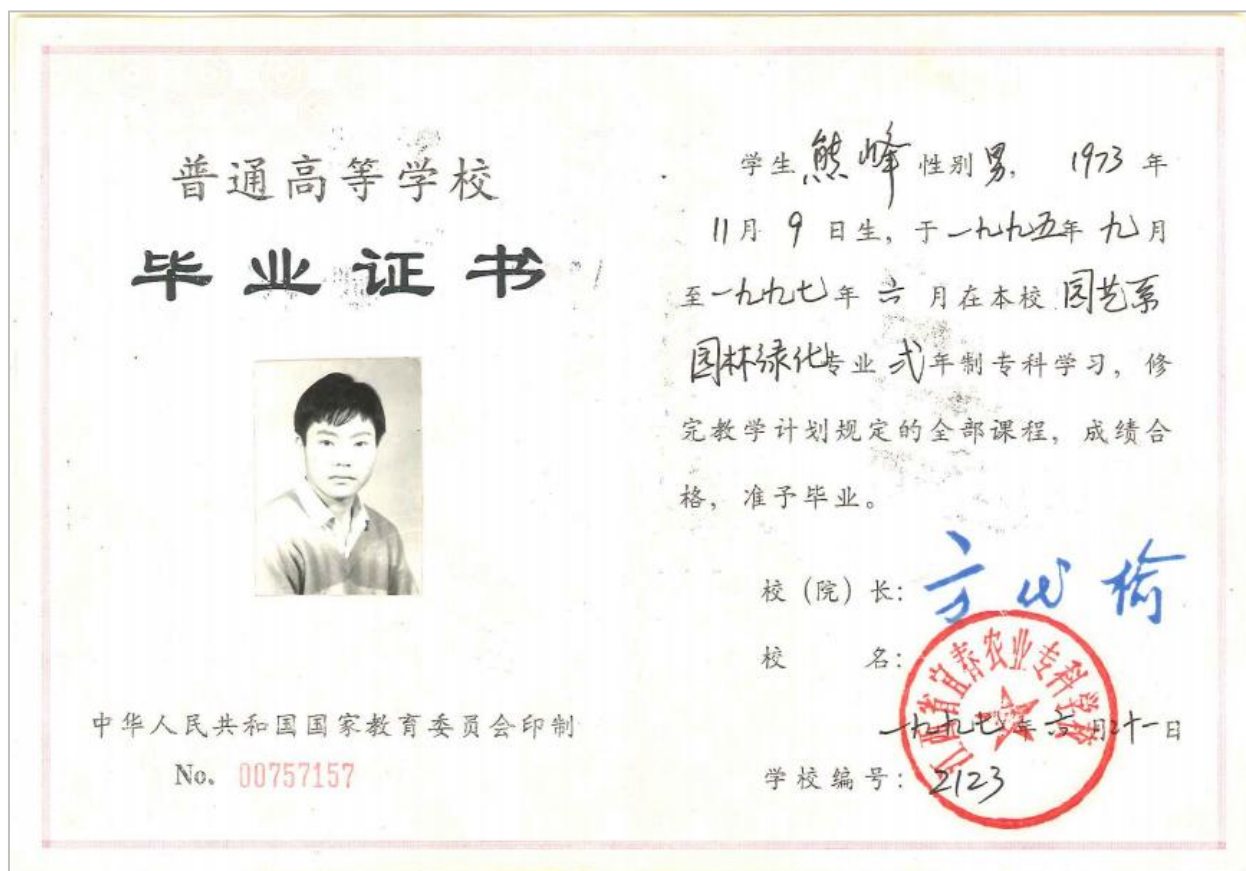 普通高等学校
毕业证书
中华人民共和国国家教育委员会印制
No. 00757157
学生熊峰性别男, 1973年
11月9日生, 于一九九五年九月
至一九九七年六月在本校园艺系
园林绿化专业弍年制专科学习, 修
完教学计划规定的全部课程, 成绩合
格, 准予毕业。
校(院)长:
校 名:
江西省宜春农业专科学校
一九九七年六月二十一日
学校编号: 2123